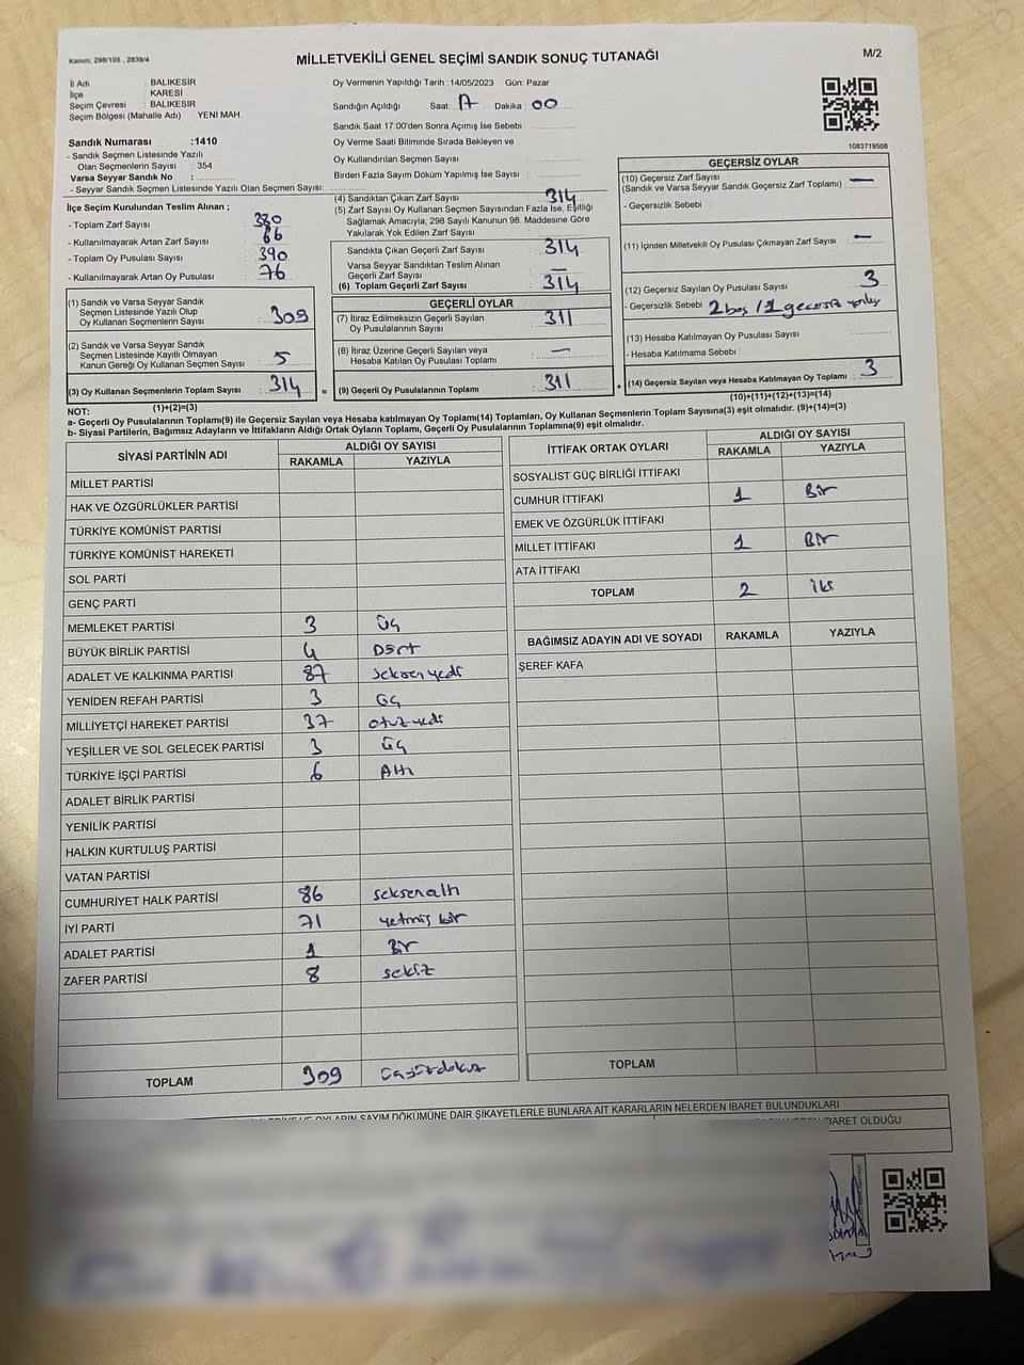 Kanun: 298/105 , 2839/4
MİLLETVEKİLİ GENEL SEÇİMİ SANDIK SONUÇ TUTANAĞI
M/2
İl Adı : BALIKESİR
İlçe : KARESİ
Seçim Çevresi : BALIKESİR
Seçim Bölgesi (Mahalle Adı) YENİ MAH.
Sandık Numarası :1410
- Sandık Seçmen Listesinde Yazılı
Olan Seçmenlerin Sayısı : 354
Varsa Seyyar Sandık No :
- Seyyar Sandık Seçmen Listesinde Yazılı Olan Seçmen Sayısı:
Oy Vermenin Yapıldığı Tarih :14/05/2023 Gün: Pazar
Sandığın Açıldığı Saat: 17 Dakika : 00
Sandık Saat 17:00'den Sonra Açımış İse Sebebi
Oy Verme Saati Bitiminde Sırada Bekleyen ve
Oy Kullandırılan Seçmen Sayısı
Birden Fazla Sayım Döküm Yapılmış İse Sayısı
1083719508
İlçe Seçim Kurulundan Teslim Alınan ;
- Toplam Zarf Sayısı : 380
- Kullanılmayarak Artan Zarf Sayısı : 66
- Toplam Oy Pusulası Sayısı : 390
- Kullanılmayarak Artan Oy Pusulası : 76
(1) Sandık ve Varsa Seyyar Sandık
Seçmen Listesinde Yazılı Olup
Oy Kullanan Seçmenlerin Sayısı : 309
(2) Sandık ve Varsa Seyyar Sandık
Seçmen Listesinde Kayıtlı Olmayan
Kanun Gereği Oy Kullanan Seçmen Sayısı : 5
(3) Oy Kullanan Seçmenlerin Toplam Sayısı : 314
(1)+(2)=(3)
(4) Sandıktan Çıkan Zarf Sayısı : 314
(5) Zarf Sayısı Oy Kullanan Seçmen Sayısından Fazla İse, Eşitliği
Sağlamak Amacıyla, 298 Sayılı Kanunun 98. Maddesine Göre
Yakılarak Yok Edilen Zarf Sayısı
Sandıkta Çıkan Geçerli Zarf Sayısı : 314
Varsa Seyyar Sandıktan Teslim Alınan
Geçerli Zarf Sayısı : —
(6) Toplam Geçerli Zarf Sayısı : 314
GEÇERLİ OYLAR
(7) İtiraz Edilmeksizin Geçerli Sayılan
Oy Pusulalarının Sayısı : 311
(8) İtiraz Üzerine Geçerli Sayılan veya
Hesaba Katılan Oy Pusulası Toplamı : —
= (9) Geçerli Oy Pusulalarının Toplamı : 311
GEÇERSİZ OYLAR
(10) Geçersiz Zarf Sayısı
(Sandık ve Varsa Seyyar Sandık Geçersiz Zarf Toplamı) : —
- Geçersizlik Sebebi
(11) İçinden Milletvekili Oy Pusulası Çıkmayan Zarf Sayısı : —
(12) Geçersiz Sayılan Oy Pusulası Sayısı : 3
- Geçersizlik Sebebi : 2 boş / 1 geçersiz
(13) Hesaba Katılmayan Oy Pusulası Sayısı
- Hesaba Katılmama Sebebi :
+ (14) Geçersiz Sayılan veya Hesaba Katılmayan Oy Toplamı : 3
(10)+(11)+(12)+(13)=(14)
NOT:
a- Geçerli Oy Pusulalarının Toplamı(9) ile Geçersiz Sayılan veya Hesaba katılmayan Oy Toplamı(14) Toplamları, Oy Kullanan Seçmenlerin Toplam Sayısına(3) eşit olmalıdır. (9)+(14)=(3)
b- Siyasi Partilerin, Bağımsız Adayların ve İttifakların Aldığı Ortak Oyların Toplamı, Geçerli Oy Pusulalarının Toplamına(9) eşit olmalıdır.
SİYASİ PARTİNİN ADI ALDIĞI OY SAYISI
RAKAMLA YAZIYLA
MİLLET PARTİSİ
HAK VE ÖZGÜRLÜKLER PARTİSİ
TÜRKİYE KOMÜNİST PARTİSİ
TÜRKİYE KOMÜNİST HAREKETİ
SOL PARTİ
GENÇ PARTİ
MEMLEKET PARTİSİ 3 Üç
BÜYÜK BİRLİK PARTİSİ 4 Dört
ADALET VE KALKINMA PARTİSİ 87 seksen yedi
YENİDEN REFAH PARTİSİ 3 Üç
MİLLİYETÇİ HAREKET PARTİSİ 37 otuz yedi
YEŞİLLER VE SOL GELECEK PARTİSİ 3 Üç
TÜRKİYE İŞÇİ PARTİSİ 6 Altı
ADALET BİRLİK PARTİSİ
YENİLİK PARTİSİ
HALKIN KURTULUŞ PARTİSİ
VATAN PARTİSİ
CUMHURİYET HALK PARTİSİ 86 seksen altı
İYİ PARTİ 71 yetmiş bir
ADALET PARTİSİ 1 Bir
ZAFER PARTİSİ 8 sekiz
TOPLAM 309 üçyüzdokuz
İTTİFAK ORTAK OYLARI ALDIĞI OY SAYISI
RAKAMLA YAZIYLA
SOSYALİST GÜÇ BİRLİĞİ İTTİFAKI
CUMHUR İTTİFAKI 1 Bir
EMEK VE ÖZGÜRLÜK İTTİFAKI
MİLLET İTTİFAKI 1 Bir
ATA İTTİFAKI
TOPLAM 2 iki
BAĞIMSIZ ADAYIN ADI VE SOYADI RAKAMLA YAZIYLA
ŞEREF KAFA
TOPLAM
VE OYLARIN SAYIM DÖKÜMÜNE DAİR ŞİKAYETLERLE BUNLARA AİT KARARLARIN NELERDEN İBARET BULUNDUKLARI
İBARET OLDUĞU